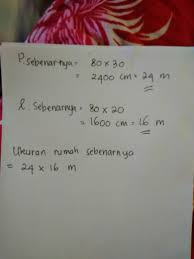 P. Sebenarnya = 80 x 30
= 2400 cm = 24 m
l. Sebenarnya = 80 x 20
= 1600 cm = 16 m
Ukuran rumah sebenarnya
= 24 x 16 m